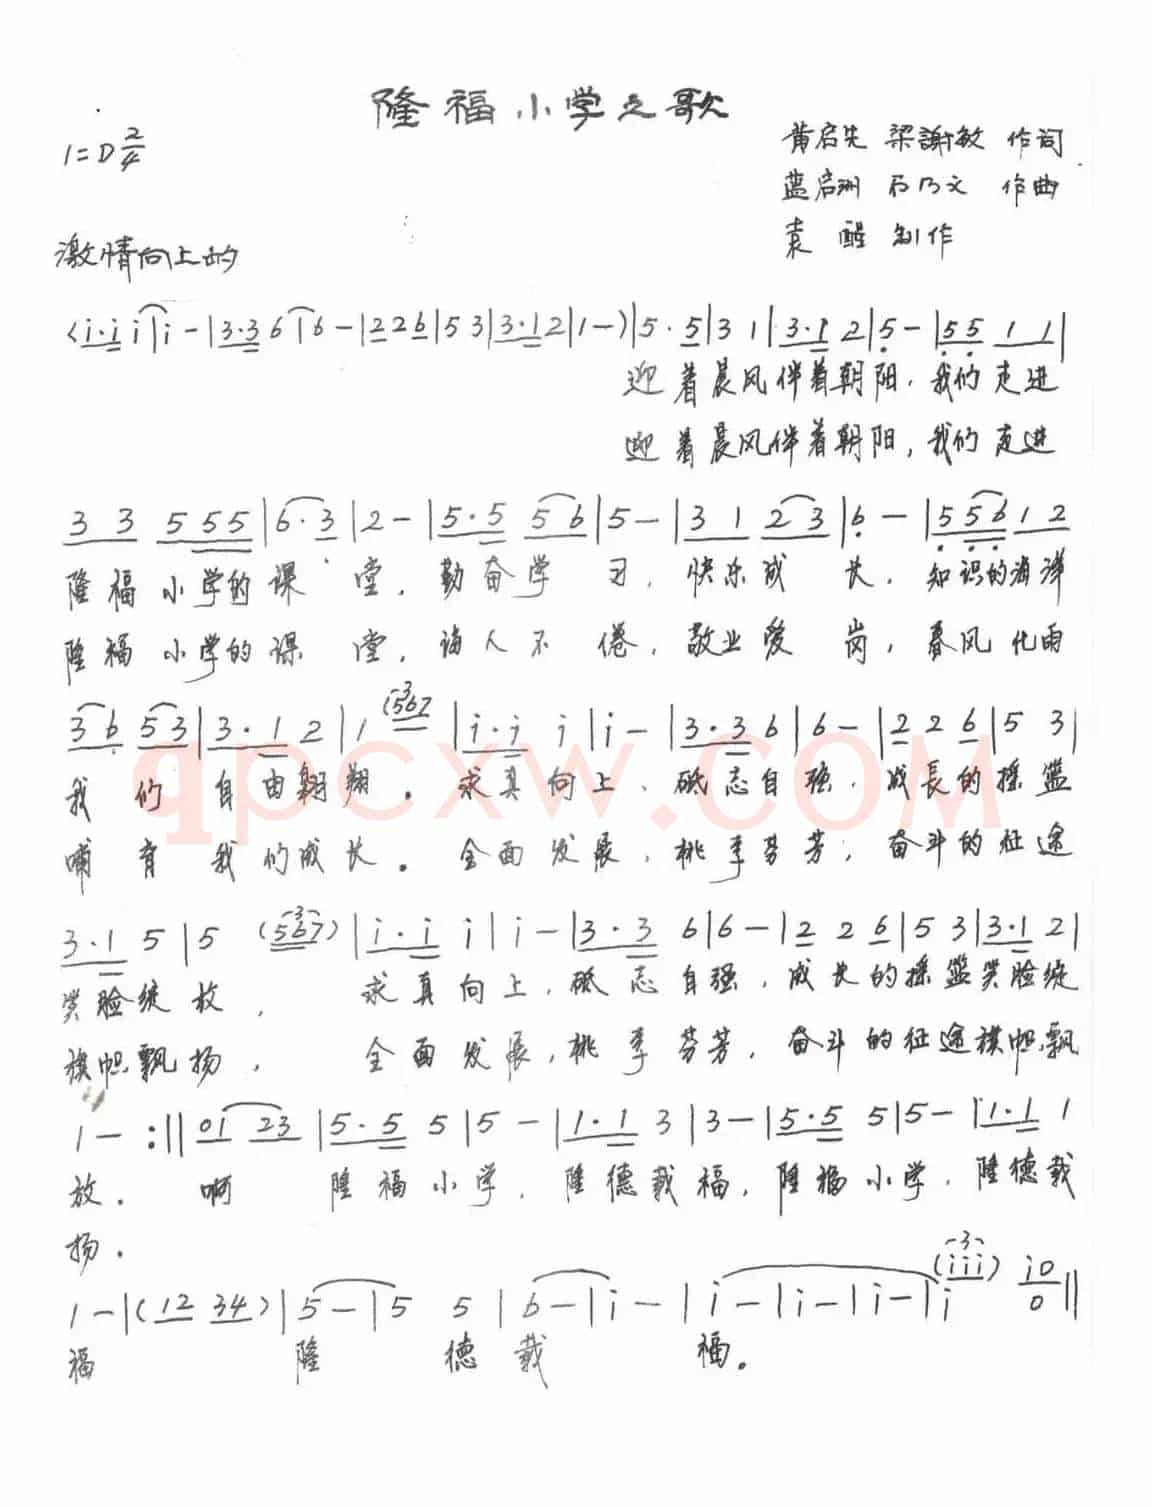 隆福小学之歌
1=D 2/4
黄启先 梁謝敏 作词
蓝启洲 石乃文 作曲
袁醒 制作
激情向上的
(i·i i|i-|3·3 6|6-|2 2 6|5 3|3·1 2|1-)|5·5|3 1|3·1 2|5-|5 5 1 1|
迎着晨风伴着朝阳,我们走进
迎着晨风伴着朝阳,我们走进
3 3 5 5 5|6·3|2-|5·5 5 6|5-|3 1 2 3|6-|5 5 6 1 2
隆福小学的课堂,勤奋学习,快乐成长,知识的海洋
隆福小学的课堂,诲人不倦,敬业爱岗,春风化雨
3 6 5 3|3·1 2|1 (5 6 7|i·i i|i-|3·3 6|6-|2 2 6|5 3|
我们自由翱翔。求真向上、砥志自强,成長的摇篮
哺育我们成长。全面发展,桃李芬芳,奋斗的征途
3·1 5|5 (5 6 7)|i·i i|i-|3·3 6|6-|2 2 6|5 3|3·1 2|
笑脸绽放, 求真向上,砥志自强,成长的摇篮笑脸绽
旗帜飘扬, 全面发展,桃李芬芳,奋斗的征途旗帜飘
1-:||0 1 2 3|5·5 5|5-|1·1 3|3-|5·5 5|5-|1·1 1
放. 啊 隆福小学,隆德载福,隆福小学,隆德载
扬.
1-|(1 2 3 4)|5-|5 5|6-|i-|i-|i-|i-|i (i i i) i 0 0||
福 隆 德载 福。
qpcxw.COM